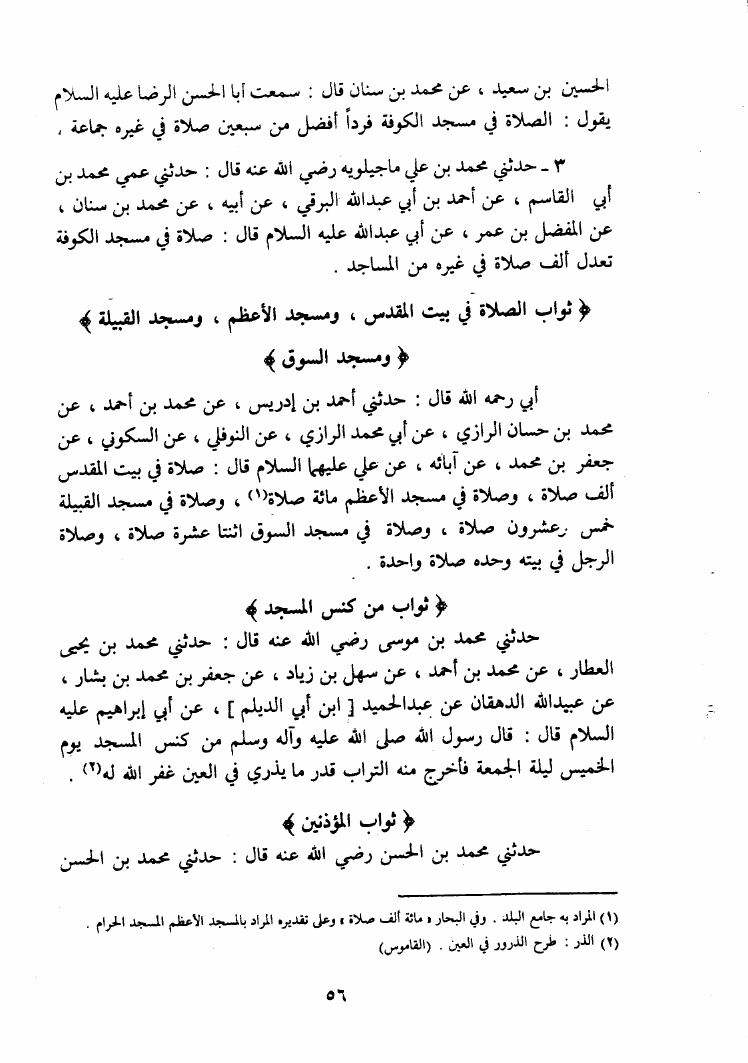 الحسين بن سعيد ، عن محمد بن سنان قال : سمعت أبا الحسن الرضا عليه السلام
يقول : الصلاة في مسجد الكوفة فرداً أفضل من سبعين صلاة في غيره جماعة .
٣ ـ حدثني محمد بن علي ماجيلويه رضي الله عنه قال : حدثني عمي محمد بن
أبي القاسم ، عن أحمد بن أبي عبدالله البرقي ، عن أبيه ، عن محمد بن سنان ،
عن المفضل بن عمر ، عن أبي عبدالله عليه السلام قال : صلاة في مسجد الكوفة
تعدل ألف صلاة في غيره من المساجد .
﴿ ثواب الصلاة في بيت المقدس ، ومسجد الأعظم ، ومسجد القبيلة ﴾
﴿ ومسجد السوق ﴾
أبي رحمه الله قال : حدثني أحمد بن إدريس ، عن محمد بن أحمد ، عن
محمد بن حسان الرازي ، عن أبي محمد الرازي ، عن النوفلي ، عن السكوني ، عن
جعفر بن محمد ، عن آبائه ، عن علي عليهما السلام قال : صلاة في بيت المقدس
ألف صلاة ، وصلاة في مسجد الأعظم مائة صلاة(١) ، وصلاة في مسجد القبيلة
خمس وعشرون صلاة ، وصلاة في مسجد السوق اثنتا عشرة صلاة ، وصلاة
الرجل في بيته وحده صلاة واحدة .
﴿ ثواب من كنس المسجد ﴾
حدثني محمد بن موسى رضي الله عنه قال : حدثني محمد بن يحيى
العطار ، عن محمد بن أحمد ، عن سهل بن زياد ، عن جعفر بن محمد بن بشار ،
عن عبيدالله الدهقان عن عبدالحميد [ ابن أبي الديلم ] ، عن أبي إبراهيم عليه
السلام قال : قال رسول الله صلى الله عليه وآله وسلم من كنس المسجد يوم
الخميس ليلة الجمعة فأخرج منه التراب قدر ما يذري في العين غفر الله له(٢) .
﴿ ثواب المؤذنين ﴾
حدثني محمد بن الحسن رضي الله عنه قال : حدثني محمد بن الحسن
(١) المراد به جامع البلد . وفي البحار « مائة ألف صلاة » وعلى تقديره المراد بالمسجد الأعظم المسجد الحرام .
(٢) الذر : طرح الذرور في العين . (القاموس)
٥٦